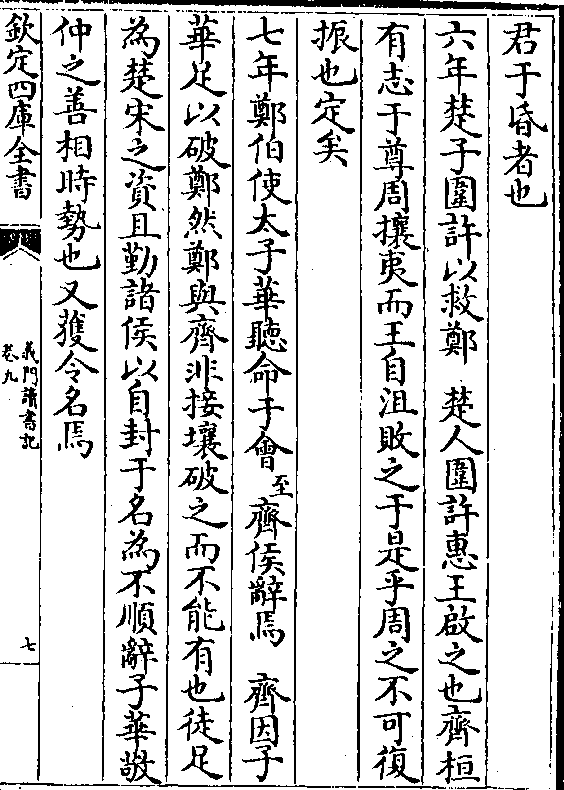 君于昏者也
六年楚子圍許以救鄭　楚人圍許惠王啟之也齊桓
有志于尊周攘夷而王自沮敗之于是乎周之不可復
振也定矣
七年鄭伯使太子華聽命于會至齊侯辭焉　齊因子
華足以破鄭然鄭與齊非接壤破之而不能有也徒足
為楚宋之資且勤諸侯以自封于名為不順辭子華敬
仲之善相時勢也又獲令名焉
欽定四庫全書
義門讀書記
卷九
七